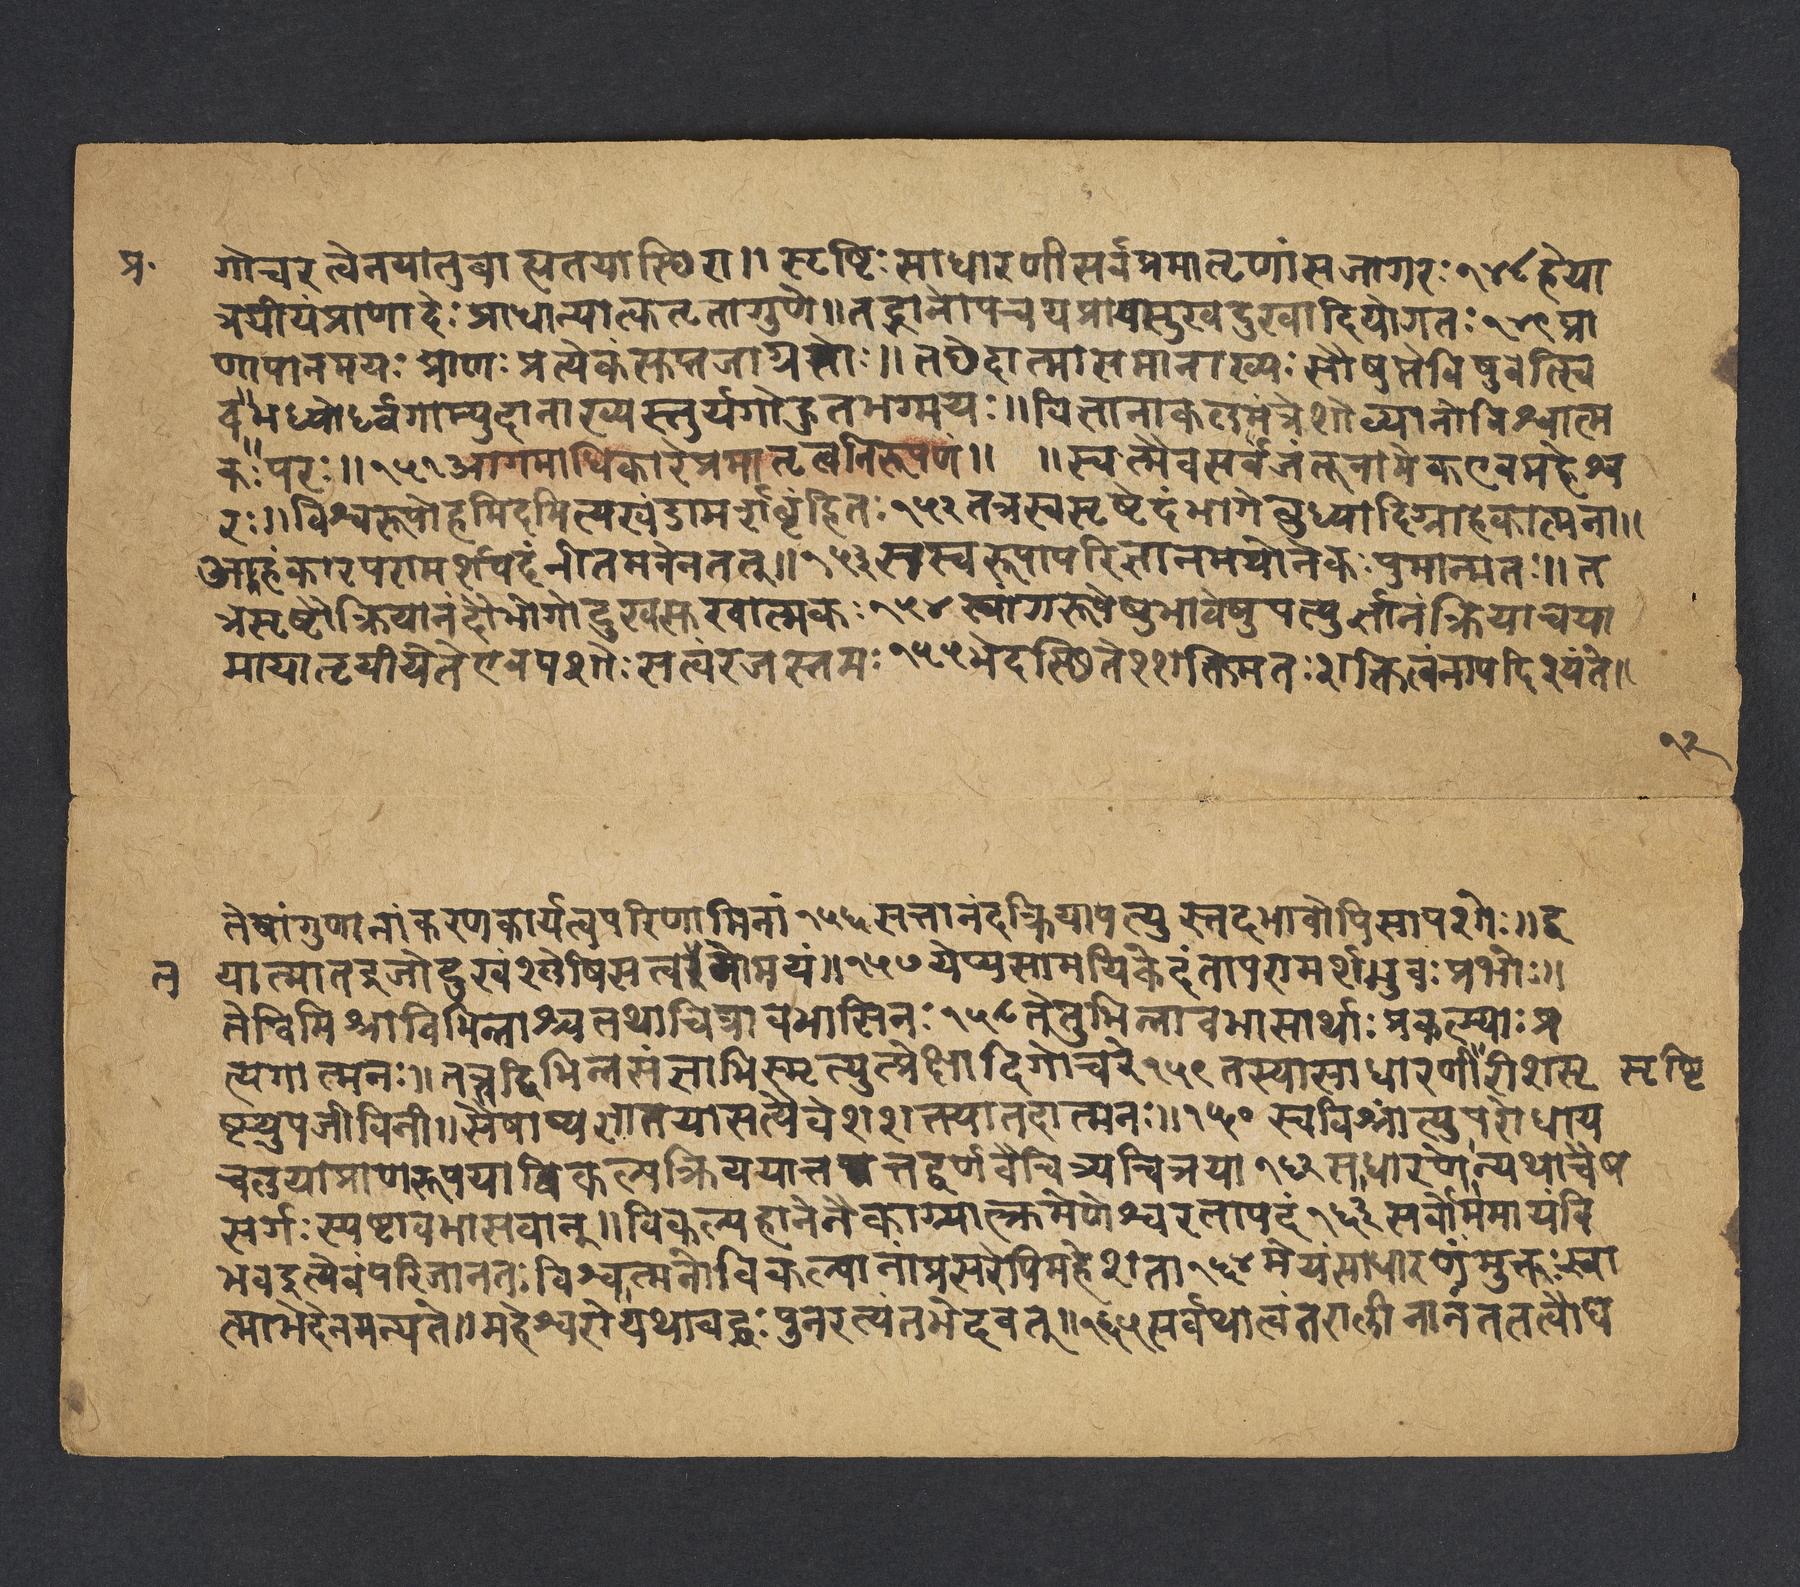 प्र॰
गोचरत्वेनयातुबाह्यतयास्थिरा॥ सृष्टिः साधारणीसर्वप्रमातॄणांसजागरः १४८ हेया
त्रयीयंप्राणादेः प्राधान्यात्कर्तृतागुणे॥ तद्धानोपचयप्रायसुखदुखादियोगतः १४९ प्रा
णापानमयः प्राणः प्रत्येकंसुप्तजाग्रतोः॥ तछेदात्मासमानाख्यः सौषुप्तेविषुवत्स्वि
व॥मध्योर्ध्वगाम्युदानाख्यस्तुर्यगोहुतभग्मयः॥ विज्ञानाकलमंत्रेशोव्यानोविश्वात्म
कः परः॥ १५१ आगमाधिकारेप्रमातृत्वनिरूपणं॥ ॥ स्वात्मैवसर्वजंतूनामेकएवमहेश्व
रः॥ विश्वरूपोहमिदमित्यखंडामर्शबृंहितः १५२ तत्रस्वसृष्टेदंभागेबुध्यादिग्राहकात्मना॥
अहंकारपरामर्शपदंनीतमनेनतत्॥ १५३ स्वस्वरूपापरिज्ञानमयोनेकः पुमान्मतः॥ त
त्रसृष्टौक्रियानंदौभोगोदुखसुखात्मकः १५४ स्वांगरूपेषुभावेषुपत्युर्ज्ञानंक्रियाचया
मायातृयीयेतेएवपशोः सत्वंरजस्तमः १५५ भेदस्थितेः शक्तिमतः शक्तित्वंनापदिश्यंते॥
१२
तेषांगुणानांकरणकार्यत्वपरिणामिनां १५६ सत्तानंदक्रियापत्युस्तदभावोपिसापशोः॥ द्व
त्र यात्मातद्रजोदुखंश्लेषिसत्वतमोमयं॥ १५७ येप्यसामयिकेदंतापरामर्शभुवः प्रभोः॥
तेविमिश्राविभिन्नाश्चतथाचित्रावभासिनः १५८ तेतुभिन्नावभासार्थाः प्रकल्प्याः प्र
त्यगात्मनः॥ तत्तद्विभिन्नसंज्ञाभिस्मृत्युत्प्रेक्षादिगोचरे १५९ तस्यासाधारणीरीशसृ सृष्टि
ष्ट्युपजीविनी॥ सैषाप्यज्ञातयासत्यैवेशशक्त्यातदात्मनः॥ १५० स्वविश्रांत्युपरोधाय
चलयाप्राणरूपयाविकल्पक्रिययातत्तद्वर्णवैचित्र्यचित्रया १६२ साधारणोन्यथाचैष
सर्गः स्पष्टावभासवान्॥ विकल्पहानेनैकाग्र्यात्क्रमेणेश्वरतापदं १६३ सर्वोममायंवि
भवइत्यैवंपरिजानतः विश्वात्मनोविकल्पानांप्रसरेपिमहेशता १६४ मेयंसाधारणंमुक्तः स्वा
त्माभेदेनमन्यते॥ महेश्वरोयथाबद्धः पुनरत्यंतभेदवत्॥ १६५ सर्वथात्वंतरालीनानंततत्वौघ